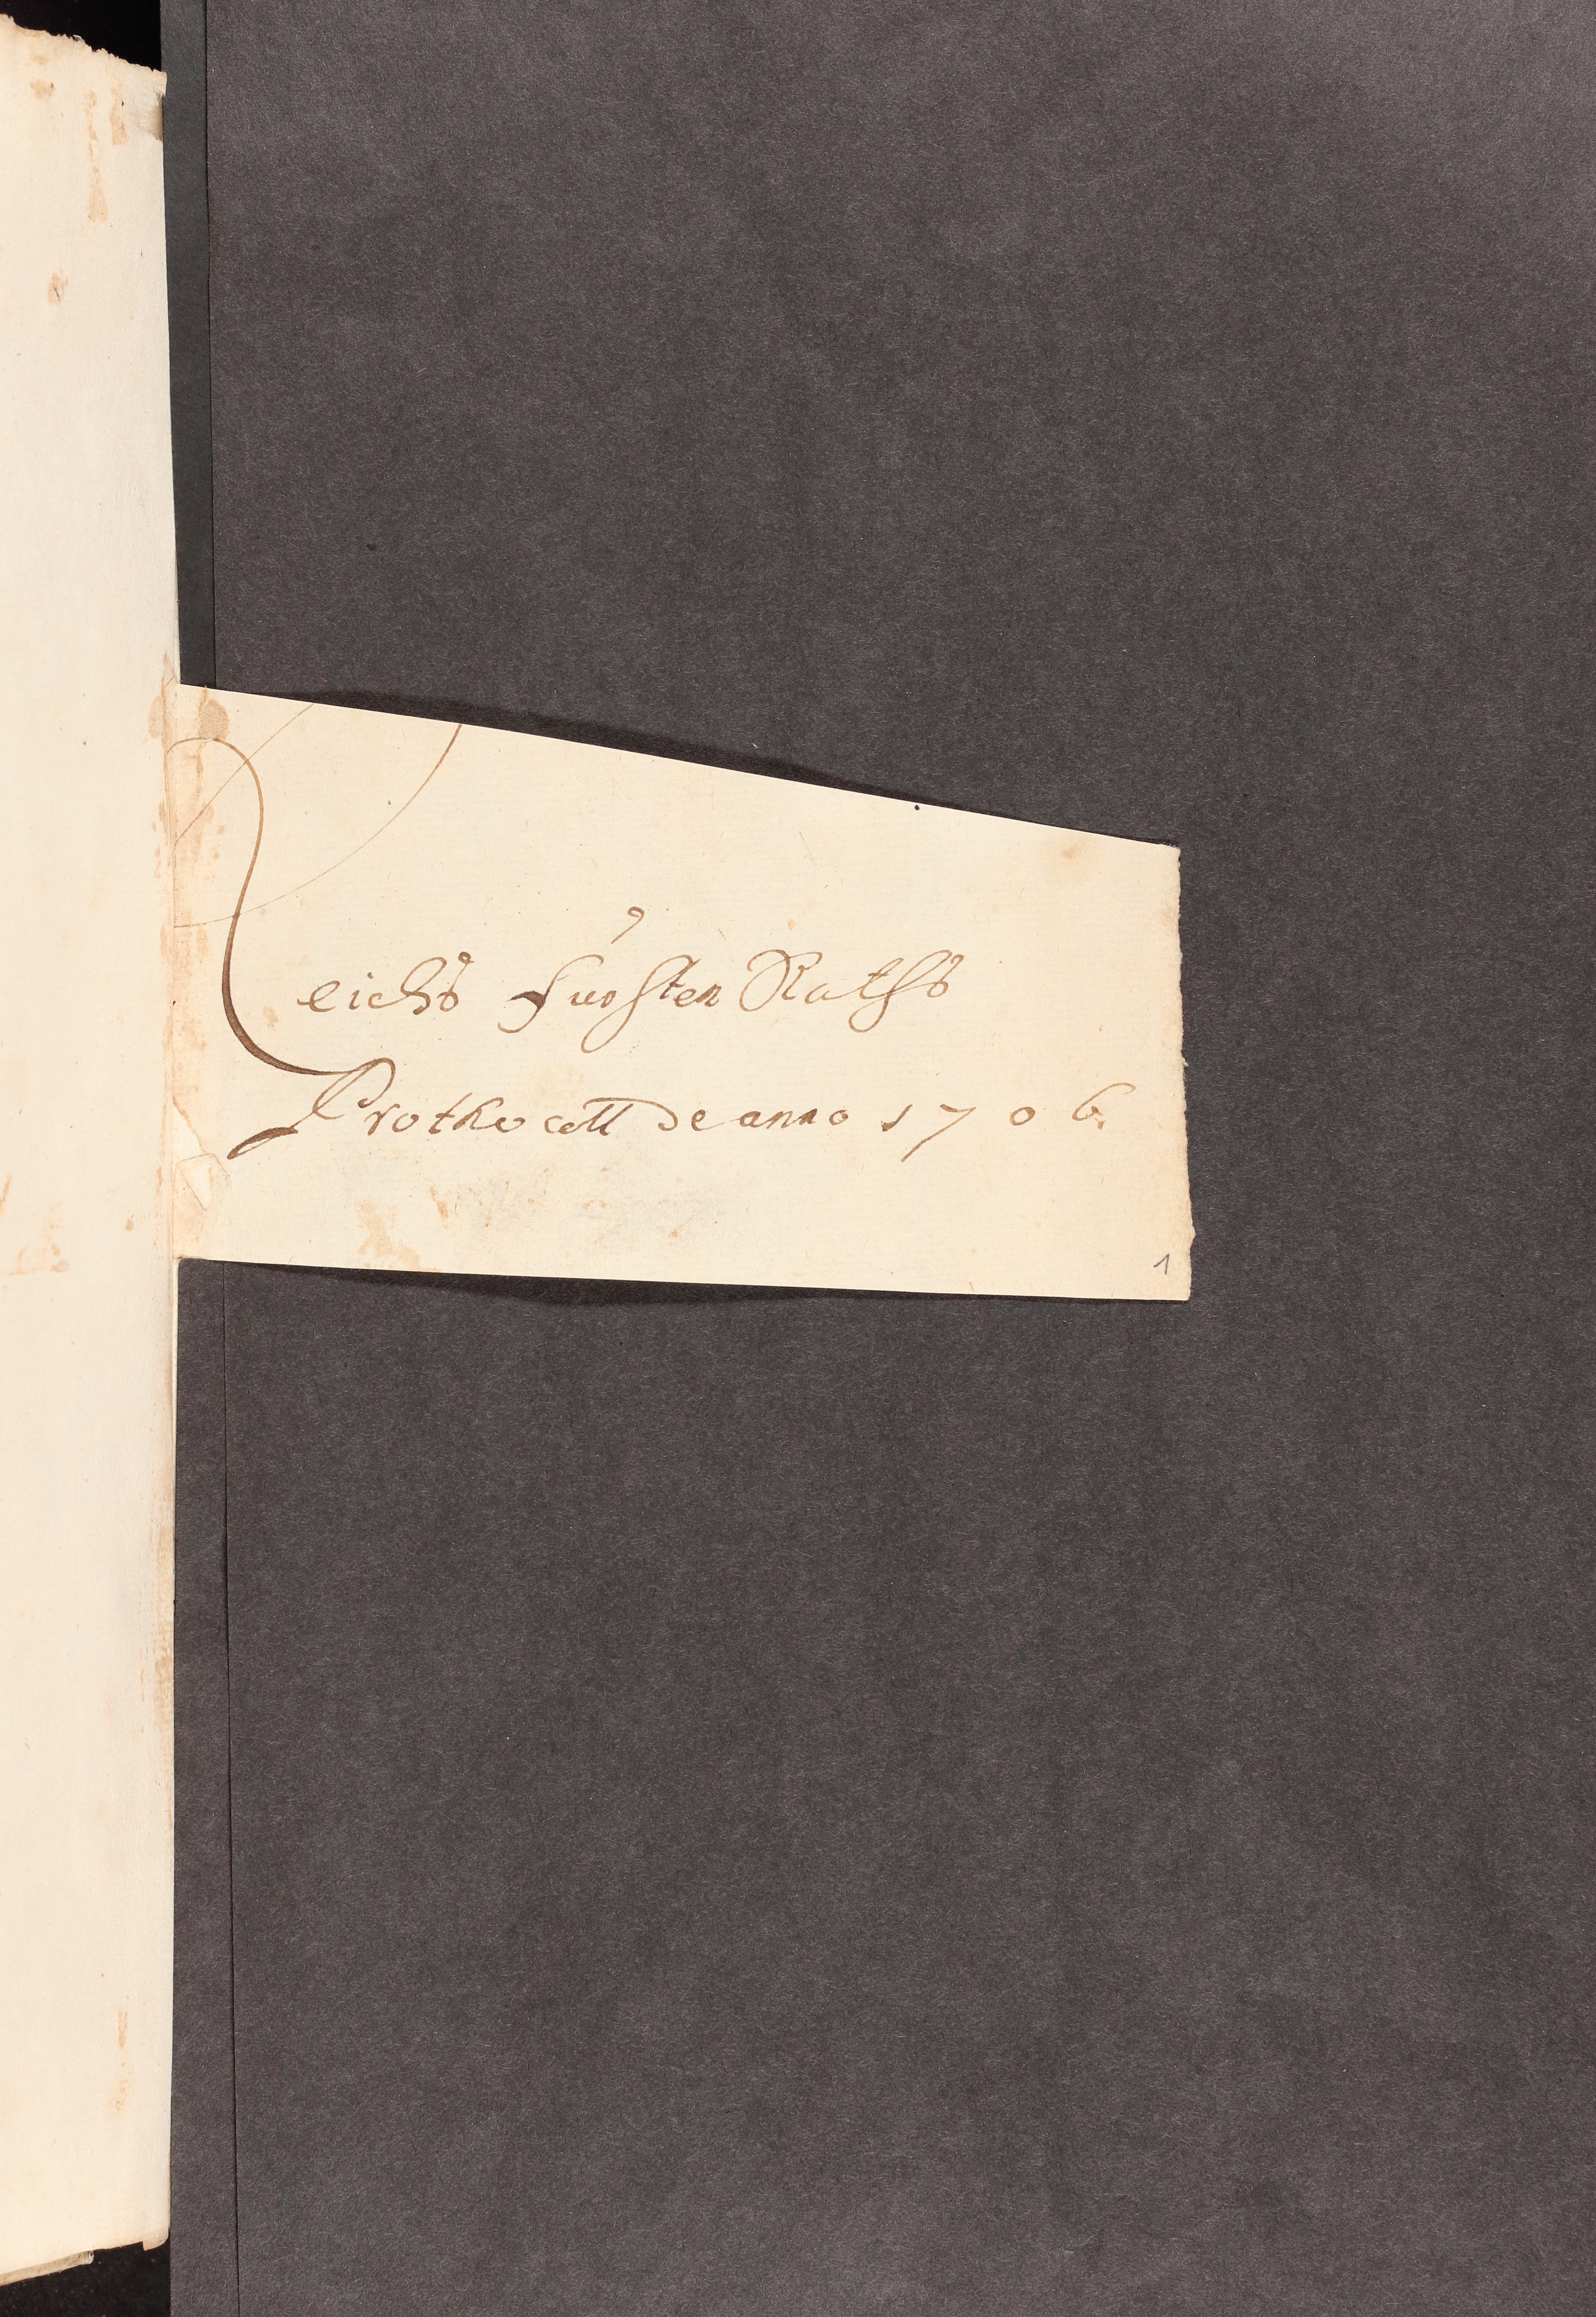 Reichs Fürsten Raths
Prothocoll de anno 1706.
1